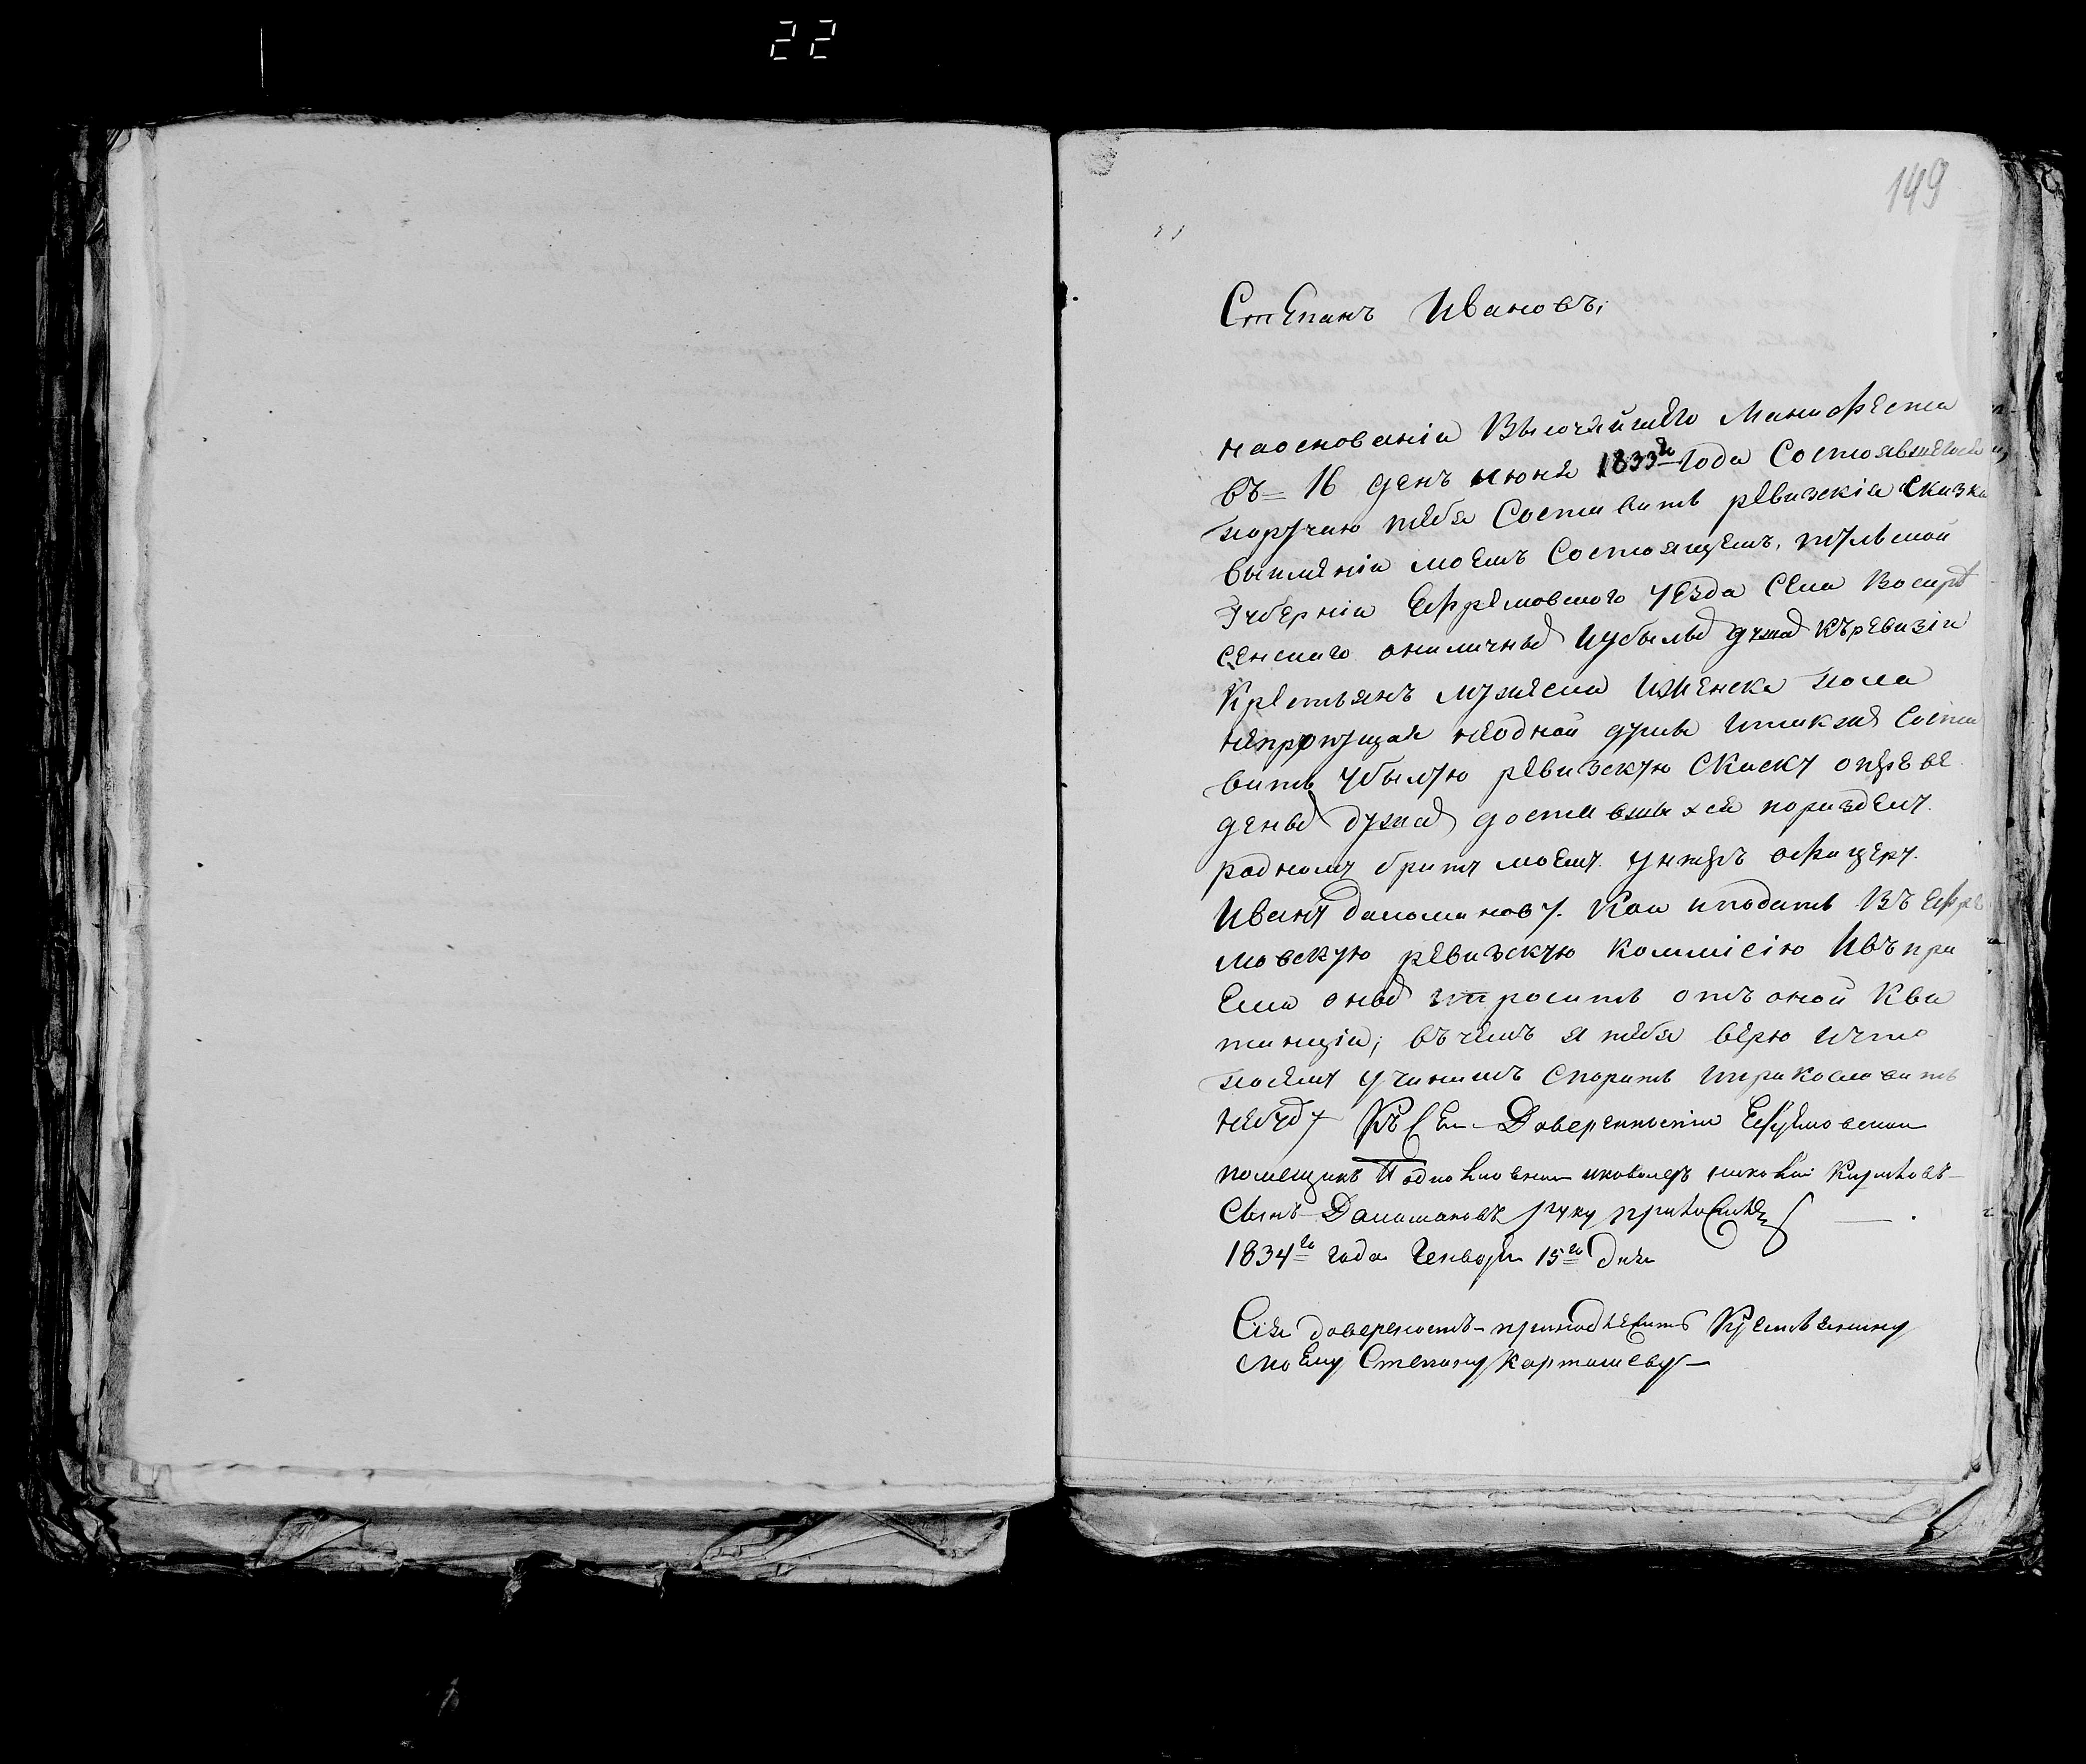 22
149
Степанъ Ивановъ;
наоснованіи Высочайшего Манифеста
въ 16 день июня 1833го года Состоявшегося
поручаю тебе Составить ревизскія Сказки
выимѣніи моемъ Состоящемъ, тульской
Губерніи Ефремовского уезда Села Воскре
сенскаго оналичныхъ Иубылыхъ душахъ къревизіи
Крестьянъ мужеска Иженска пола
непропущая неодной души Итакже Соста
вить убылую ревизскую Скаску опереве
деныхъ душахъ доставшихся поразделу
родному брату моему унтеръ офицеру
Ивану даломанову. Кои иподать Въ Ефре
мовскую ревизскую Коммисію Ивъпри
Ема оныхъ испросить отъ оной Кви
танціи; въчемъ я тебе верю Ичто
посему учинишъ Спорить Ипрекословить
небуду Къ Сей Доверенности Ефремовской
помещикъ Подполковникъ икавалеръ николай
Сынъ Даломановъ руку приложилъ
1834го года Генваря 15го дня
Сия довереность принадлежитъ Крестьянину
моему Степану Карташеву